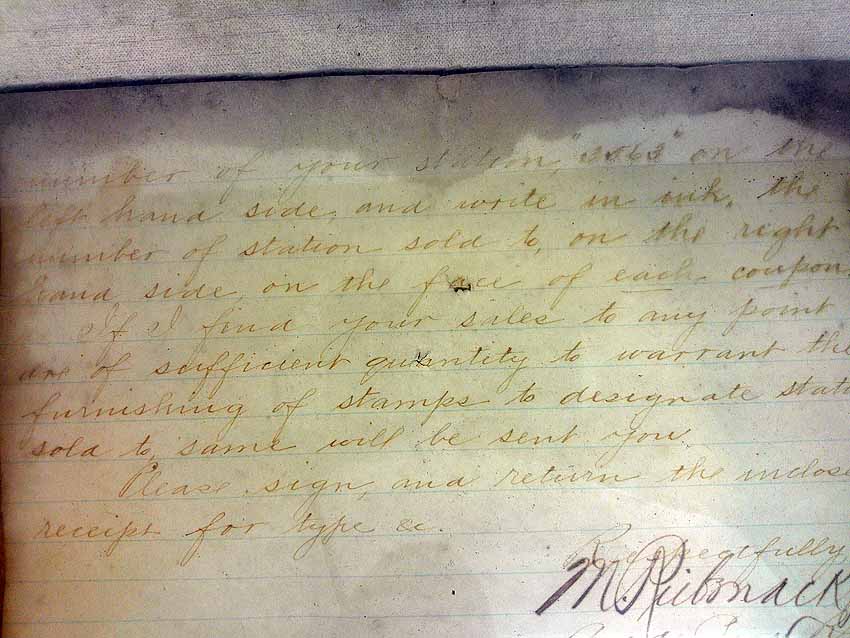 number of your station, " " on the
left hand side, and write in ink, the
number of station sold to, on the right
hand side, on the face of each coupon.
If I find your sales to any point
are of sufficient quantity to warrant the
furnishing of stamps to designate stati
sold to, same will be sent you.
Please sign, and return the inclose
receipt for type &c.
Respectfully
M.